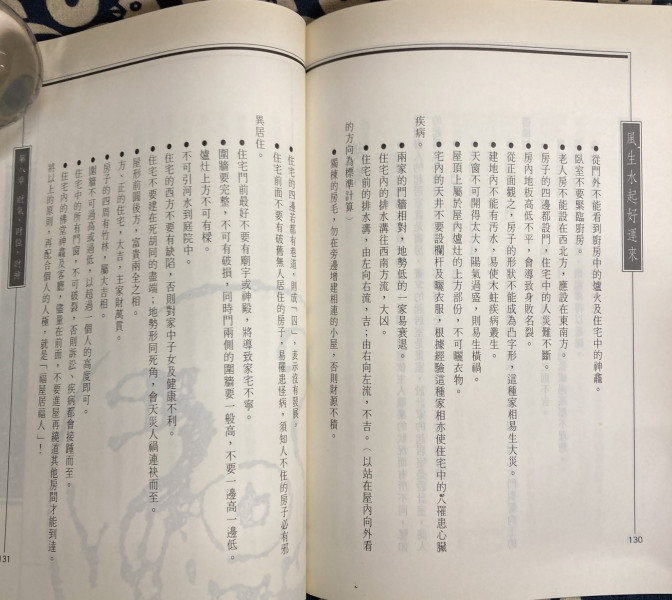 風生水起好運來
●從門外不能看到廚房中的爐火及住宅中的神龕。
●臥室不要緊臨廚房。
●老人房不能設在西北方，應設在東南方。
●房子的四邊都設門，住宅中的人災難不斷。
●房內地板高低不平，會導致身敗名裂。
●從正面觀之，房子的形狀不能成為凸字形，這種家相易生大災。
●建地內不能有污水，易使木蛀疾病叢生。
●天窗不可開得太大，陽氣過盛，則易生橫禍。
●屋頂上屬於屋內爐灶的上方部份，不可曬衣物。
●宅內的天井不要設欄杆及曬衣服，根據經驗這種家相亦使住宅中的人罹患心臟
疾病。
●兩家的門牆相對，地勢低的一家易衰退。
●住宅內的排水溝往西南方流，大凶。
●住宅前的排水溝，由左向右流，吉；由右向左流，不吉。（以站在屋內向外看
的方向為標準計算）
●獨棟的房宅，勿在旁邊增建相連的小屋，否則財源不積。
130
●住宅的四邊若都有巷道，則成「囚」，表示沒有發展。
●住宅前面不要有破舊無人居住的房子，易罹患怪病，須知人不住的房子必有邪
異居住。
●住宅門前最好不要有廟宇或神殿，將導致家宅不寧。
●圍牆要完整，不可有破損，同時門兩側的圍牆要一般高，不要一邊高一邊低。
●爐灶上方不可有樑。
●不可引河水到庭院中。
●住宅的西方不要有缺陷，否則對家中子女及健康不利。
●住宅不要建在死胡同的盡端；地勢形同死角，會天災人禍連袂而至。
●屋形前圓後方，富貴兩全之相。
●方、正的住宅，大吉，主家財萬貫。
●房子的四周有竹林，屬大吉相。
●圍牆不可過高或過低，以超過一個人的高度即可。
●住宅中的所有門窗，不可破裂，否則訴訟、疾病都會接踵而至。
●住宅內的佛堂神龕及客廳，儘量在前面，不要進屋再繞道其他房間才能到達。
將以上的原則，再配合個人的人極，就是「福屋居福人」！
131